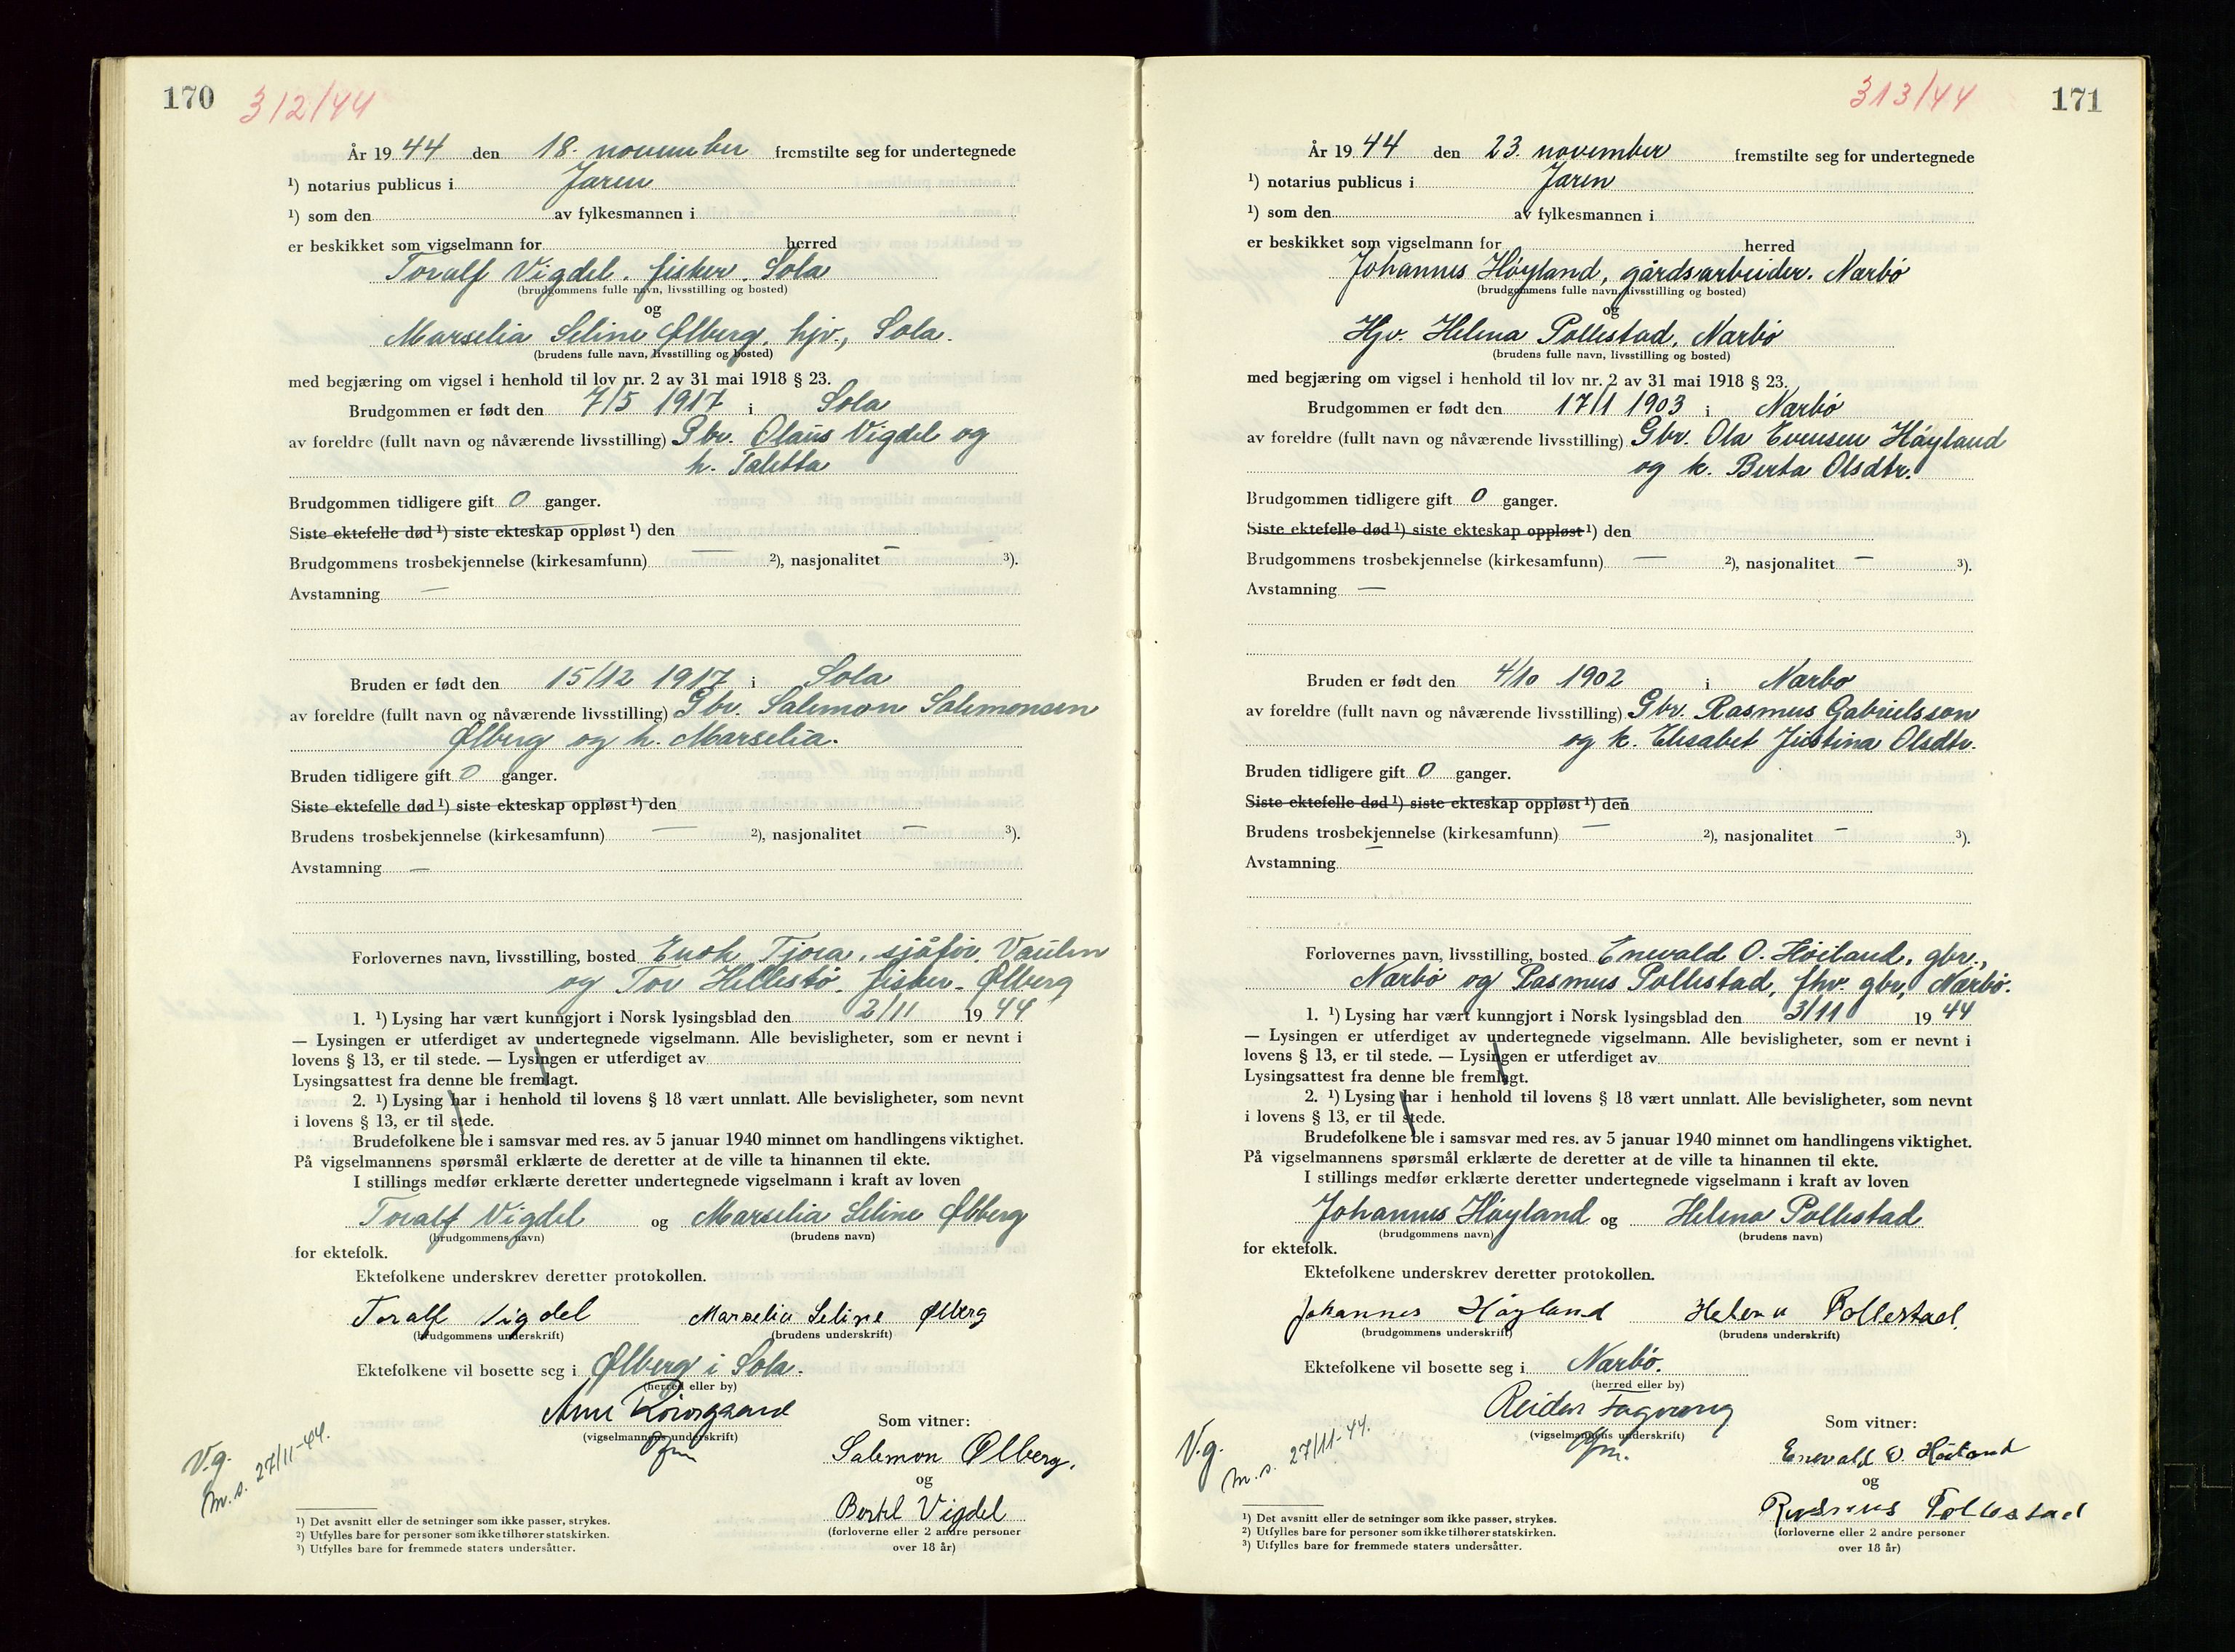 170 312/44
År 1944 den 18. november fremstilte seg for undertegnede
¹) notarius publicus i Jæren
¹) som den av fylkesmannen i
er beskikket som vigselmann for herred
Toralf Vigdel, fisker, Sola
(brudgommens fulle navn, livsstilling og bosted)
og
Marselia Seline Ølberg, hjv., Sola.
(brudens fulle navn, livsstilling og bosted)
med begjæring om vigsel i henhold til lov nr. 2 av 31 mai 1918 § 23.
Brudgommen er født den 7/5 1917 i Sola
av foreldre (fullt navn og nåværende livsstilling) Gbr. Olaus Vigdel og
h. Taletta
Brudgommen tidligere gift 0 ganger.
Siste ektefelle død ¹) siste ekteskap oppløst ¹) den
Brudgommens trosbekjennelse (kirkesamfunn) — ²), nasjonalitet — ³).
Avstamning —
Bruden er født den 15/12 1917 i Sola
av foreldre (fullt navn og nåværende livsstilling) Gbr. Salemon Salemonsen
Ølberg og h. Marselia.
Bruden tidligere gift 0 ganger.
Siste ektefelle død ¹) siste ekteskap oppløst ¹) den
Brudens trosbekjennelse (kirkesamfunn) — ²), nasjonalitet — ³).
Avstamning —
Forlovernes navn, livsstilling, bosted Enok Tjora, sjåfør, Vaulen
og Tor Hellestø, fisker, Ølberg
1. ¹) Lysing har vært kunngjort i Norsk lysingsblad den 2/11 1944
— Lysingen er utferdiget av undertegnede vigselmann. Alle bevisligheter, som er nevnt i
lovens § 13, er til stede. — Lysingen er utferdiget av
Lysingsattest fra denne ble fremlagt.
2. ¹) Lysing har i henhold til lovens § 18 vært unnlatt. Alle bevisligheter, som nevnt
i lovens § 13, er til stede.
Brudefolkene ble i samsvar med res. av 5 januar 1940 minnet om handlingens viktighet.
På vigselmannens spørsmål erklærte de deretter at de ville ta hinannen til ekte.
I stillings medfør erklærte deretter undertegnede vigselmann i kraft av loven
Toralf Vigdel og Marselia Seline Ølberg
(brudgommens navn) (brudens navn)
for ektefolk.
Ektefolkene underskrev deretter protokollen.
Toralf Vigdel Marselia Seline Ølberg
(brudgommens underskrift) (brudens underskrift)
Ektefolkene vil bosette seg i Ølberg i Sola.
(herred eller by)
(vigselmannens underskrift)
Som vitner:
Salemon Ølberg.
og
Bertel Vigdel
(forloverne eller 2 andre personer
over 18 år)
V.g.
m.s. 27/11-44.
¹) Det avsnitt eller de setninger som ikke passer, strykes.
²) Utfylles bare for personer som ikke tilhører statskirken.
³) Utfylles bare for fremmede staters undersåtter.
313/44 171
År 1944 den 23. november fremstilte seg for undertegnede
¹) notarius publicus i Jæren
¹) som den av fylkesmannen i
er beskikket som vigselmann for herred
Johannes Høyland, gårdsarbeider, Nærbø
(brudgommens fulle navn, livsstilling og bosted)
og
Hjv. Helena Pollestad, Nærbø
(brudens fulle navn, livsstilling og bosted)
med begjæring om vigsel i henhold til lov nr. 2 av 31 mai 1918 § 23.
Brudgommen er født den 17/1 1903 i Nærbø
av foreldre (fullt navn og nåværende livsstilling) Gbr. Ola Evensen Høyland
og k. Berta Olsdtr.
Brudgommen tidligere gift 0 ganger.
Siste ektefelle død ¹) siste ekteskap oppløst ¹) den
Brudgommens trosbekjennelse (kirkesamfunn) — ²), nasjonalitet — ³).
Avstamning —
Bruden er født den 4/10 1902 i Nærbø
av foreldre (fullt navn og nåværende livsstilling) Gbr. Rasmus Gabrielsson
og k. Elisabet Justina Olsdtr.
Bruden tidligere gift 0 ganger.
Siste ektefelle død ¹) siste ekteskap oppløst ¹) den
Brudens trosbekjennelse (kirkesamfunn) — ²), nasjonalitet — ³).
Avstamning —
Forlovernes navn, livsstilling, bosted Enevald O. Høiland, gbr.,
Nærbø og Rasmus Pollestad, fhv. gbr, Nærbø.
1. ¹) Lysing har vært kunngjort i Norsk lysingsblad den 3/11 1944
— Lysingen er utferdiget av undertegnede vigselmann. Alle bevisligheter, som er nevnt i
lovens § 13, er til stede. — Lysingen er utferdiget av
Lysingsattest fra denne ble fremlagt.
2. ¹) Lysing har i henhold til lovens § 18 vært unnlatt. Alle bevisligheter, som nevnt
i lovens § 13, er til stede.
Brudefolkene ble i samsvar med res. av 5 januar 1940 minnet om handlingens viktighet.
På vigselmannens spørsmål erklærte de deretter at de ville ta hinannen til ekte.
I stillings medfør erklærte deretter undertegnede vigselmann i kraft av loven
Johannes Høyland og Helena Pollestad
(brudgommens navn) (brudens navn)
for ektefolk.
Ektefolkene underskrev deretter protokollen.
Johannes Høyland Helena Pollestad.
(brudgommens underskrift) (brudens underskrift)
Ektefolkene vil bosette seg i Nærbø.
(herred eller by)
Reidar Fagereng
(vigselmannens underskrift)
Som vitner:
Enevald O. Høiland
og
Rasmus Pollestad
(forloverne eller 2 andre personer
over 18 år)
V.g.
m.s. 27/11-44.
¹) Det avsnitt eller de setninger som ikke passer, strykes.
²) Utfylles bare for personer som ikke tilhører statskirken.
³) Utfylles bare for fremmede staters undersåtter.